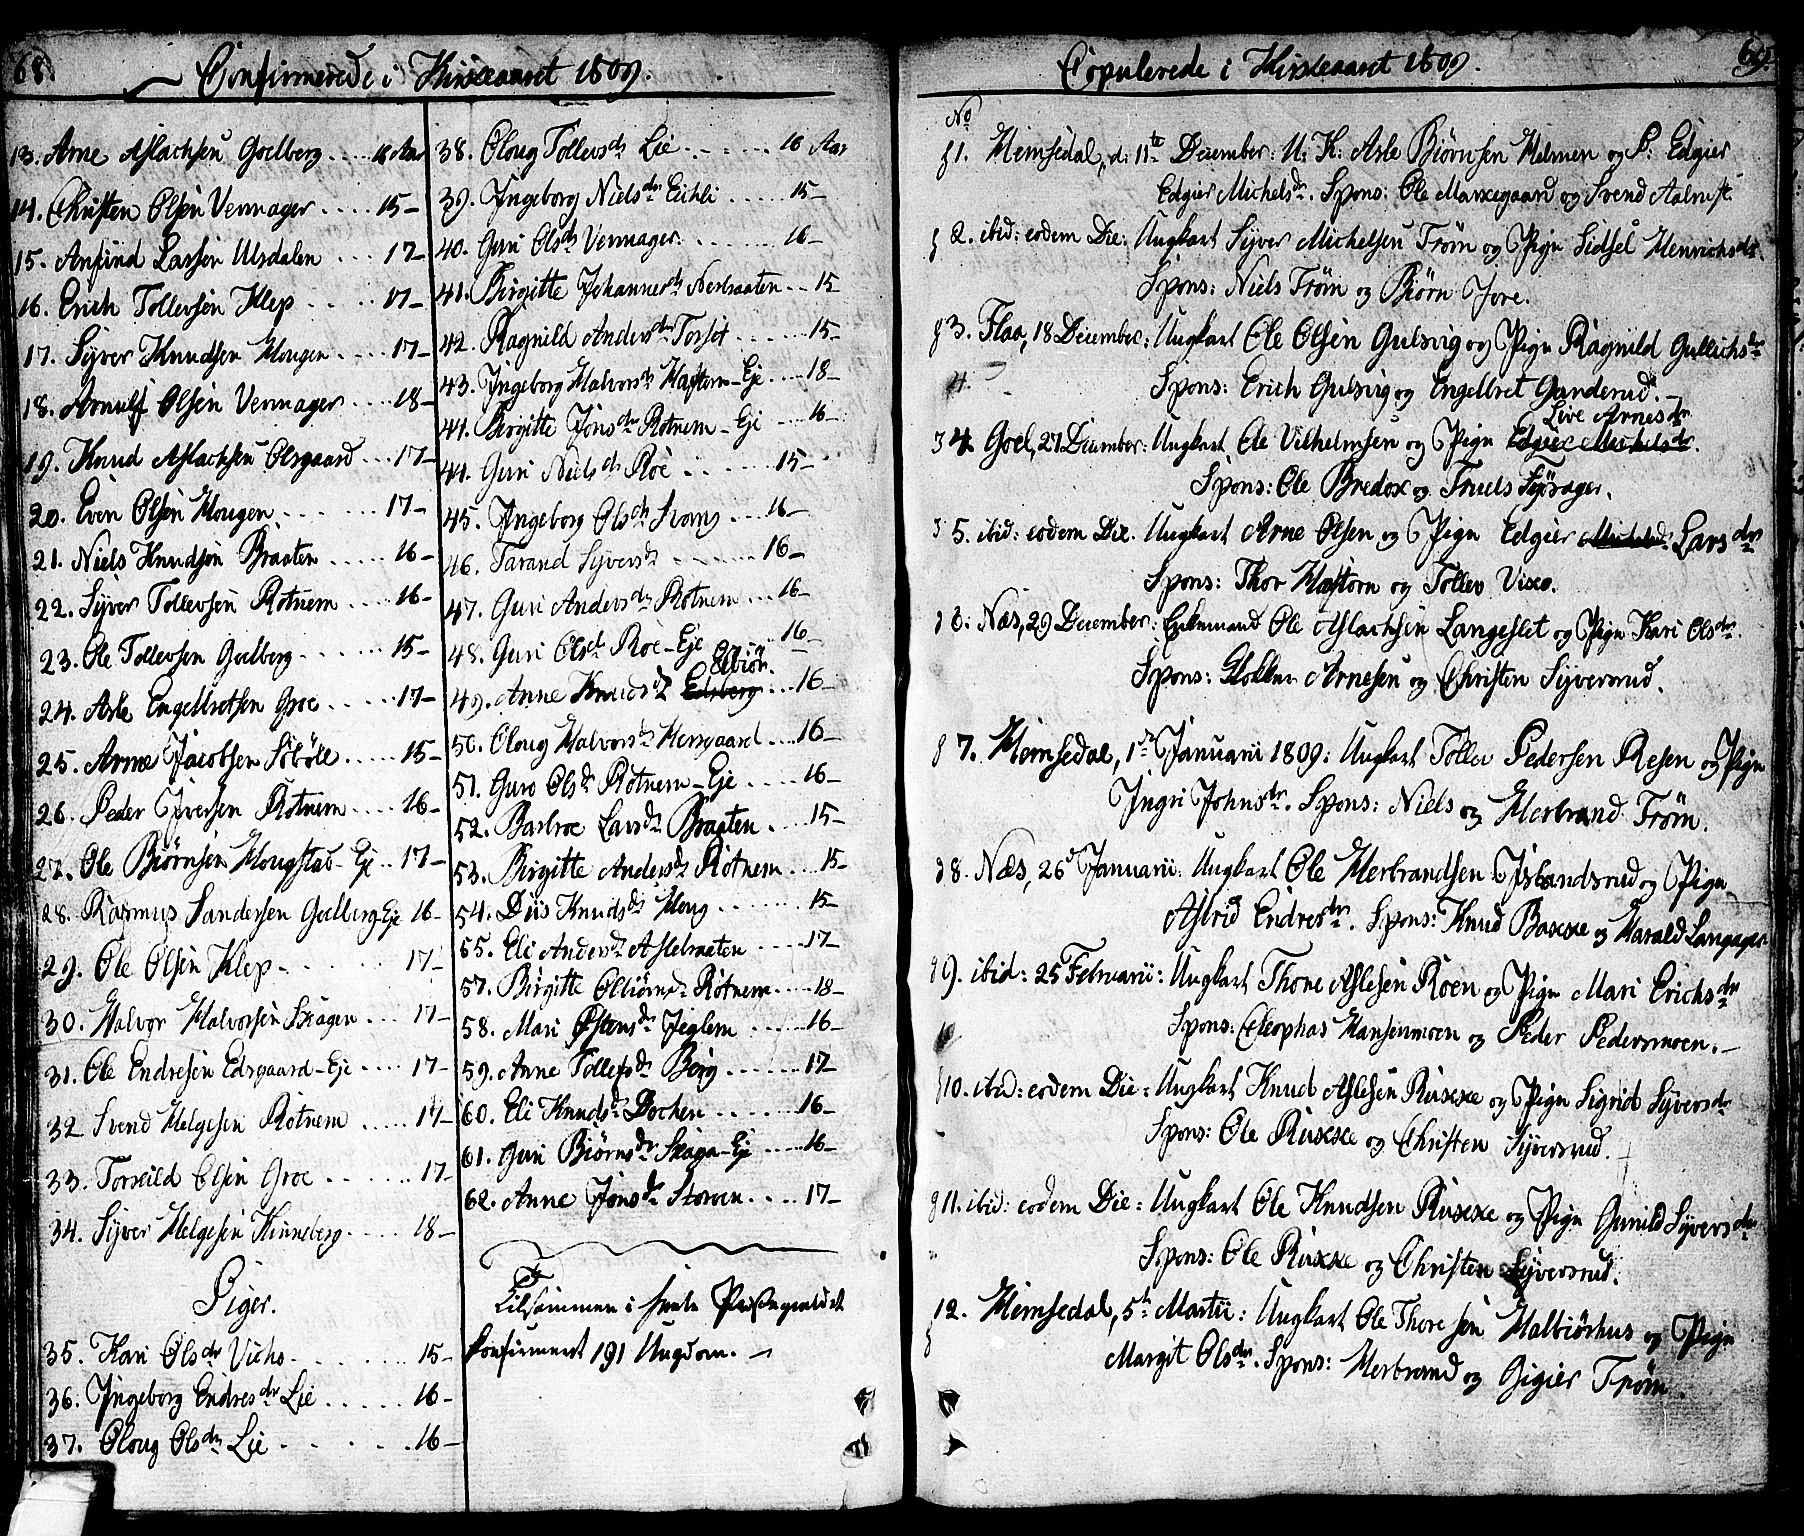 68.
Confirmerede i Kirkeaaret 1809.
13. Arne Aslachsen Goelberg .... 16 Aar
14. Christen Olsen Vennager .... 15 -
15. Anfind Larsen Ulsdalen ... 17 -
16. Erich Tollevsen Klep .... 17 -
17. Syver Knudsen Hougen .... 17 -
18. Arnulf Olsen Vennager .... 18 -
19. Knud Aslachsen Olsgaard ... 17 -
20. Even Olsen Hougen ..... 17 -
21. Niels Knudsen Braaten ..... 16 -
22. Syver Tollevsen Rotnem .... 16 -
23. Ole Tollevsen Goelberg ..... 15 -
24. Asle Engelbretsen Groe ..... 17 -
25. Arne Jacobsen Söböle ..... 15 -
26. Peder Iversen Rotnem .... 16 -
27. Ole Biørnsen Hougstad-Eje .. 17 -
28. Rasmus Sandersen Goelberg-Eje 16 -
29. Ole Olsen Klep ..... 17 -
30. Halvor Halvorsen Skagen ... 17 -
31. Ole Endresen Edsgaard-Eje .... 17 -
32 Svend Helgesen Rotnem ..... 17 -
33. Torkild Olsen Groe ..... 17
34. Syver Helgesen Kinneberg .... 18 -
Piger.
35. Kari Ols dr Vichs ..... 15 -
36. Ingeborg Endres dr Lie ..... 16 -
37. Oloug Ols dr Lie ..... 16 -
38. Oloug Tollevs dr Lie ..... 16 Aar
39. Ingeborg Niels dr Eichli .... 15 -
40. Guri Ols dr Vennager ..... 16 -
41. Birgitte Johannes dr Nerbraaten .. 15 -
42. Ragnild Anders dr Torset ..... 15 -
43. Ingeborg Halvors dr Haftorn-Eje .... 18 -
44. Birgitte Jons dr Rotnem-Eje ... 16 -
44. Guri Niels dr Roe ..... 15 -
45. Ingeborg Ols dr ... 16 -
46. Tarand Syvers dr ..... 16 -
47. Guri Anders dr Rotnem ... 16 -
48. Guri Ols dr Roe-Eje .. 16 -
Olbiör.
49. Anne Knuds dr Edsberg ... 16 -
50. Oloug Halvors dr Hersgaard .... 16 -
51. Guro Ols dr Rotnem-Eje .... 16 -
52. Barbroe Lars dr Braaten .... 15 -
53. Birgitte Anders dr Rotnem ... 15 -
54. Diis Knuds dr Houg ..... 15 -
55. Eli Anders dr Aslebraaten ..... 17 -
57. Birgitte Olbiörns dr Rotnem .... 18 -
58. Mari Østens dr Jeglem .... 16 -
59. Anne Tollefs dr Berg ..... 17 -
60. Eli Knuds dr Dochen ..... 16 -
61. Guri Biørns dr Skaga-Eje .... 16 -
62. Anne Jons dr Storven .... 17 -
Tilsammen i heele Præstegieldet
Confirmert 191 Ungdom. -
69.
Copulerede i Kirkeaaret 1809.
No
1. Hemsedal, d: 11te December: U: K: Asle Biørnsen Helmen og P: Edgier
Edgier Michels dr. Spons: Ole Markegaard og Svend
2. ibid: eodem Die: Ungkarl Syver Michelsen Trøm og Pign Sidsel Henrichs dr.
Spons: Niels Trøm og Biørn Tore.
3. Flaa, 18 December: Ungkarl Ole Olsen Gulsvig og Pign Ragnild Gullichs dr
Spons: Erich Gulsvig og Engelbret Ganderud. -
Live Arnes dr
4. Goel, 27 December: Ungkarl Ole Vilhelmsen og Pign Edgier Michels dr.
Spons: Ole Bredok og Truels
5. ibid: eodem Die. Ungkarl Arne Olsen og Pign Edgier Michels dr Lars dr
Spons: Thor Haftorn og Tollev Viko.
6: Næs, 29 December: Enkemand Ole Aslachsen Langeslet og Pign Kari Ols dr.
Spons: Klokker Arnesen og Christen Syversrud.
7. Hemsedal, 1te Januarii 1809: Ungkarl Tollev Pedersen Resen og Pign
Ingri Johns dr. Spons: Niels og Herbrand Trøm.
8. Næs, 26 d Januarii: Ungkarl Ole Herbrandsen Islandsrud og Pign
Astrid Endres dr. Spons: Knud Bakke og Harald Langager
9. ibid: 25 Februarii: Ungkarl Thore Aslesen Roen og Pign Mari Erichs dr
Spons: Cleophas Hansenmoen og Peder Pedersmoen. -
10. ibid: eodem Die: Ungkarl Knud Aslesen Rukke og Pign Sigrid Syvers dr
Spons: Ole Rukke og Christen Syversrud.
11. ibid: eodem Die: Ungkarl Ole Knudsen Rukke og Pign Gunild Syvers dr
Spons: Ole Rukke og Christen Syversrud.
12. Hemsedal, 5te Martii: Ungkarl Ole Thoresen Halbiörhus og Pign
Margit Ols dr. Spons: Herbrand og Gigier Trøm.